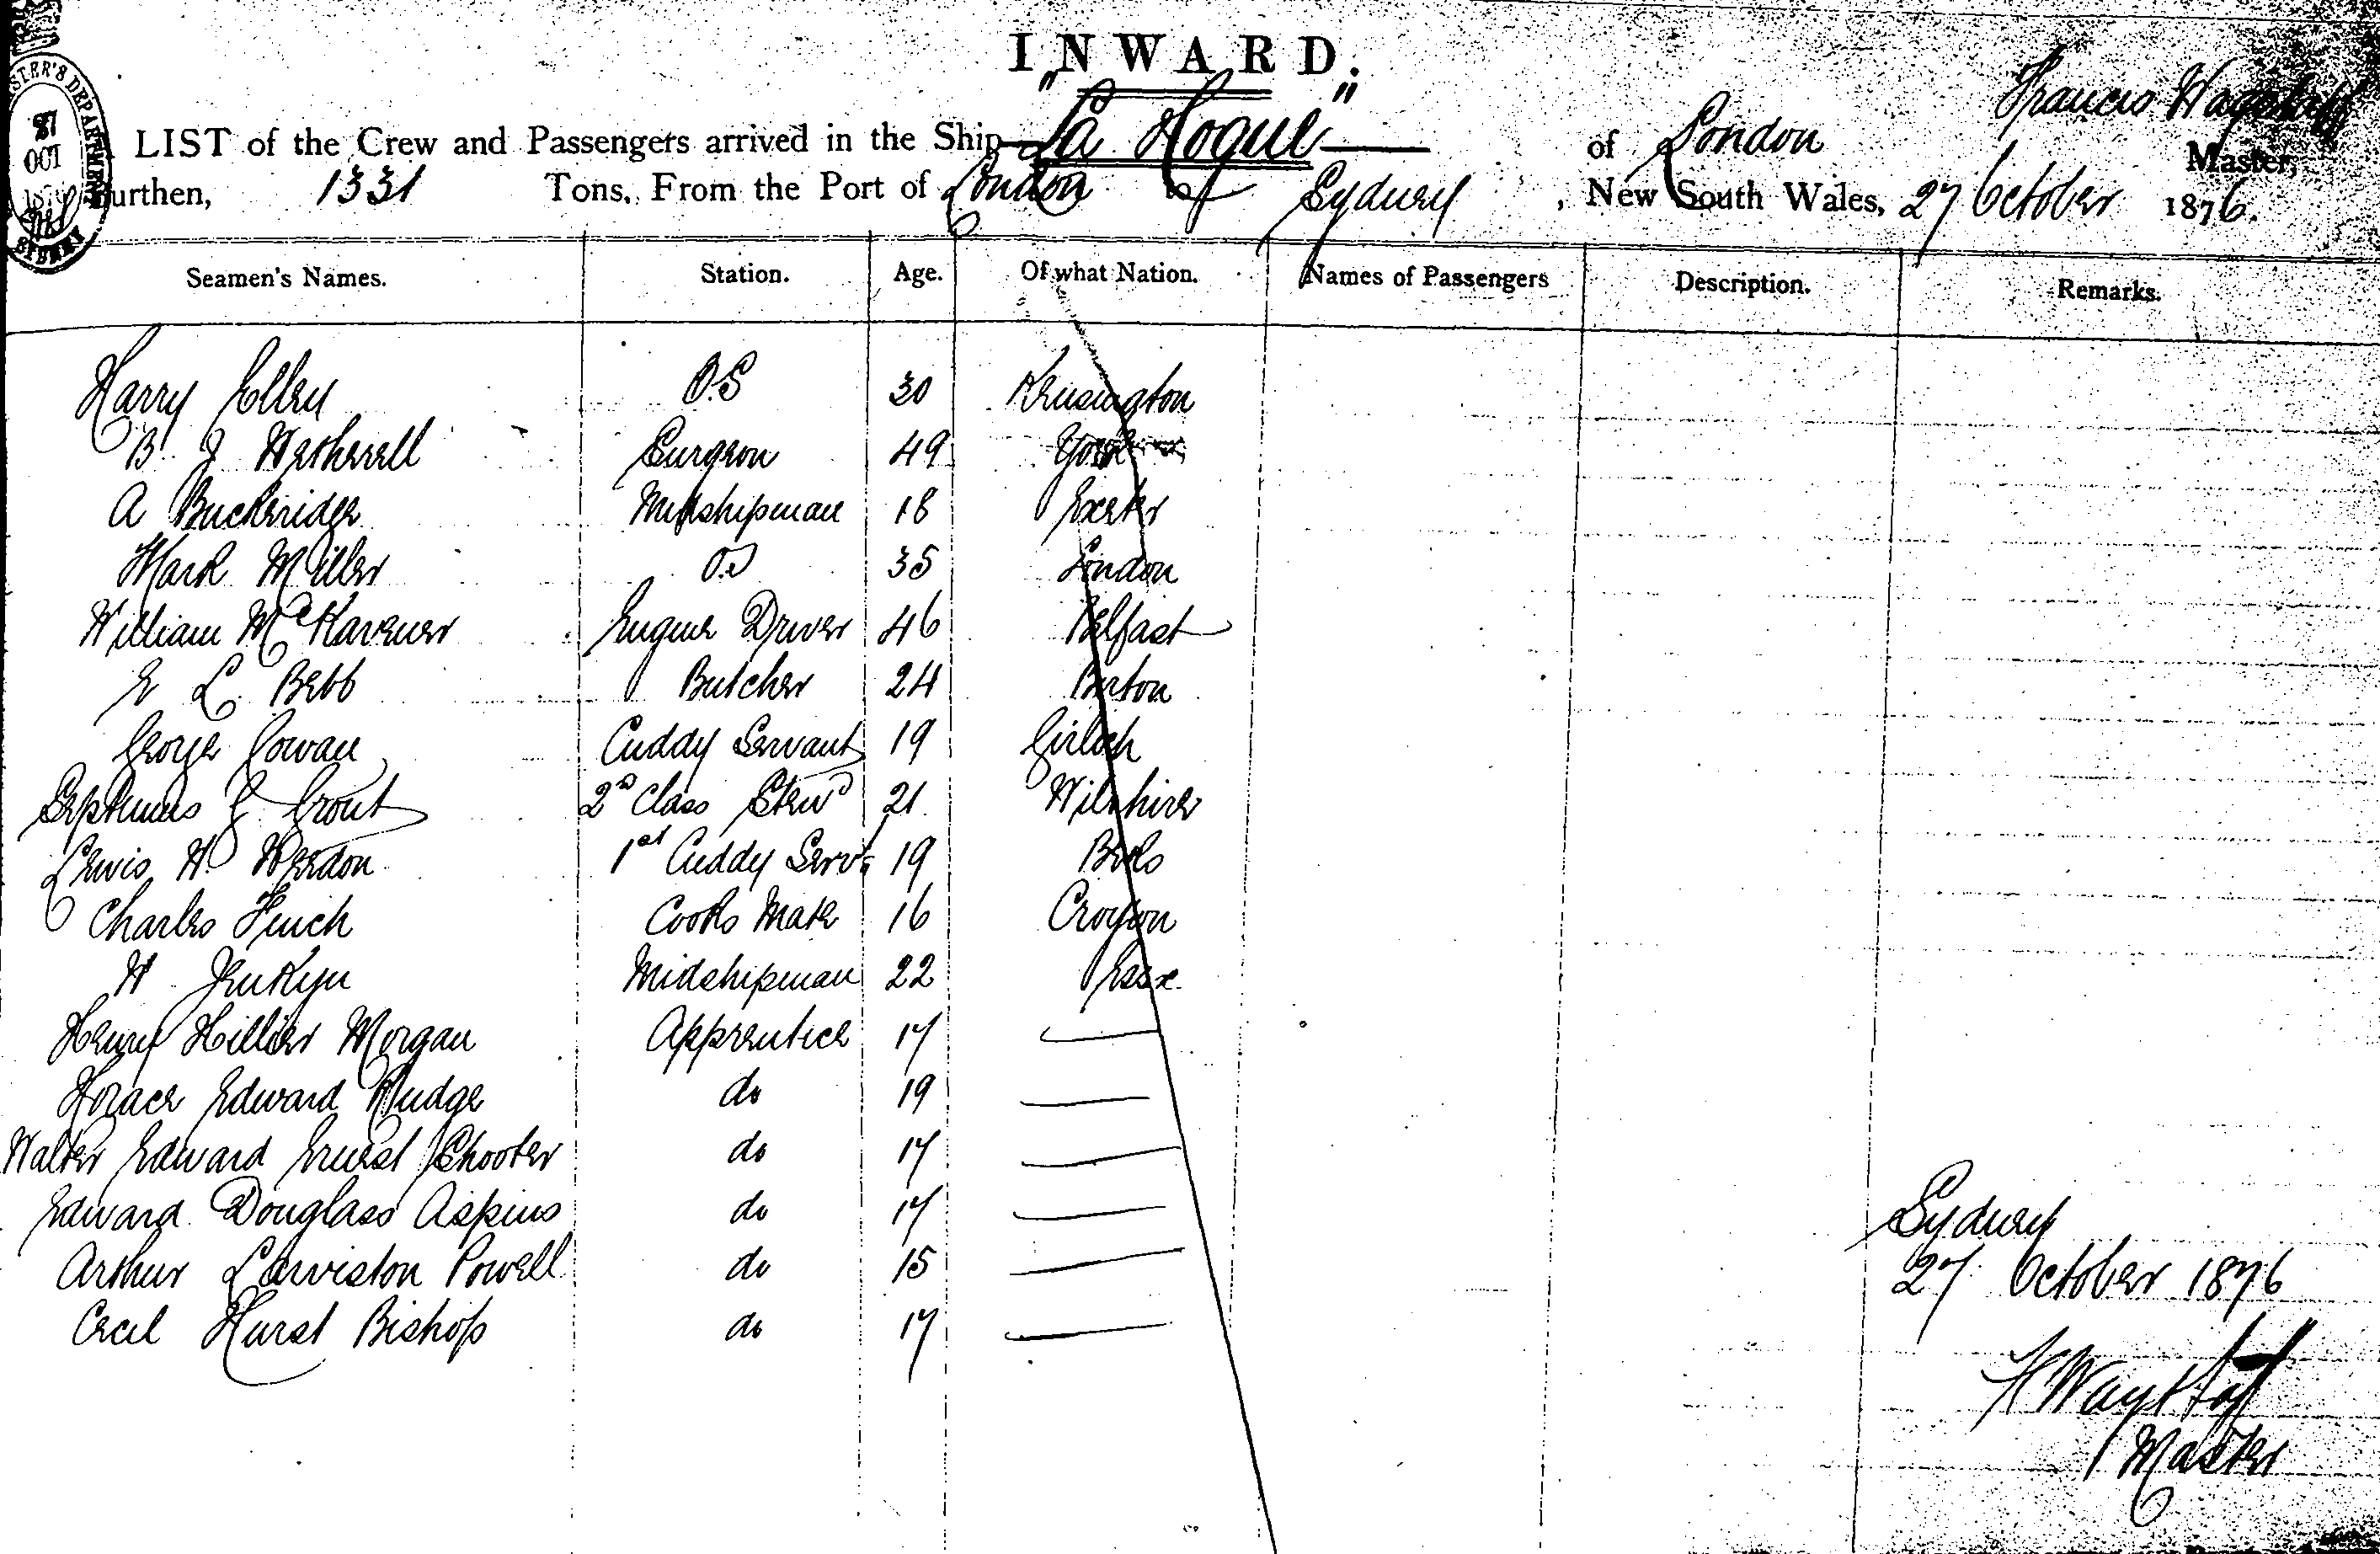 INWARD.
"La Hogue" of London Francis Wagstaff Master,
LIST of the Crew and Passengers arrived in the Ship
Burthen, 1331 Tons, From the Port of London to Sydney, New South Wales, 27 October 1876.
Seamen's Names. Station. Age. Of what Nation. Names of Passengers Description. Remarks.
Harry Ellen O.S 30 Kensington
B. J Wetherell Surgeon 49 York
A Buckeridge Midshipman 18 Exeter
Mark Miller O.S 35 London
William McKavener Engine Driver 46 Belfast
E L. Bebb Butcher 24 Burton
George Cowan Cuddy Servant 19
Septimus Grout 2nd Class Stewd 21 Wilshire
Lewis W. Weedon 1st Cuddy Servt 19 Bucks
Charles Finch Cooks Mate 16 Croydon
W Jenkyn Midshipman 22 Essex
Henry Hillier Morgan Apprentice 17
Horace Edward Rudge do 19
Walter Edward Ernest Shooter do 17
Edward Douglass Aspins do 17
Arthur Lewiston Powell do 15
Cecil Hurst Bishop do 17
Sydney
27 October 1876
F Wagstaff
Master